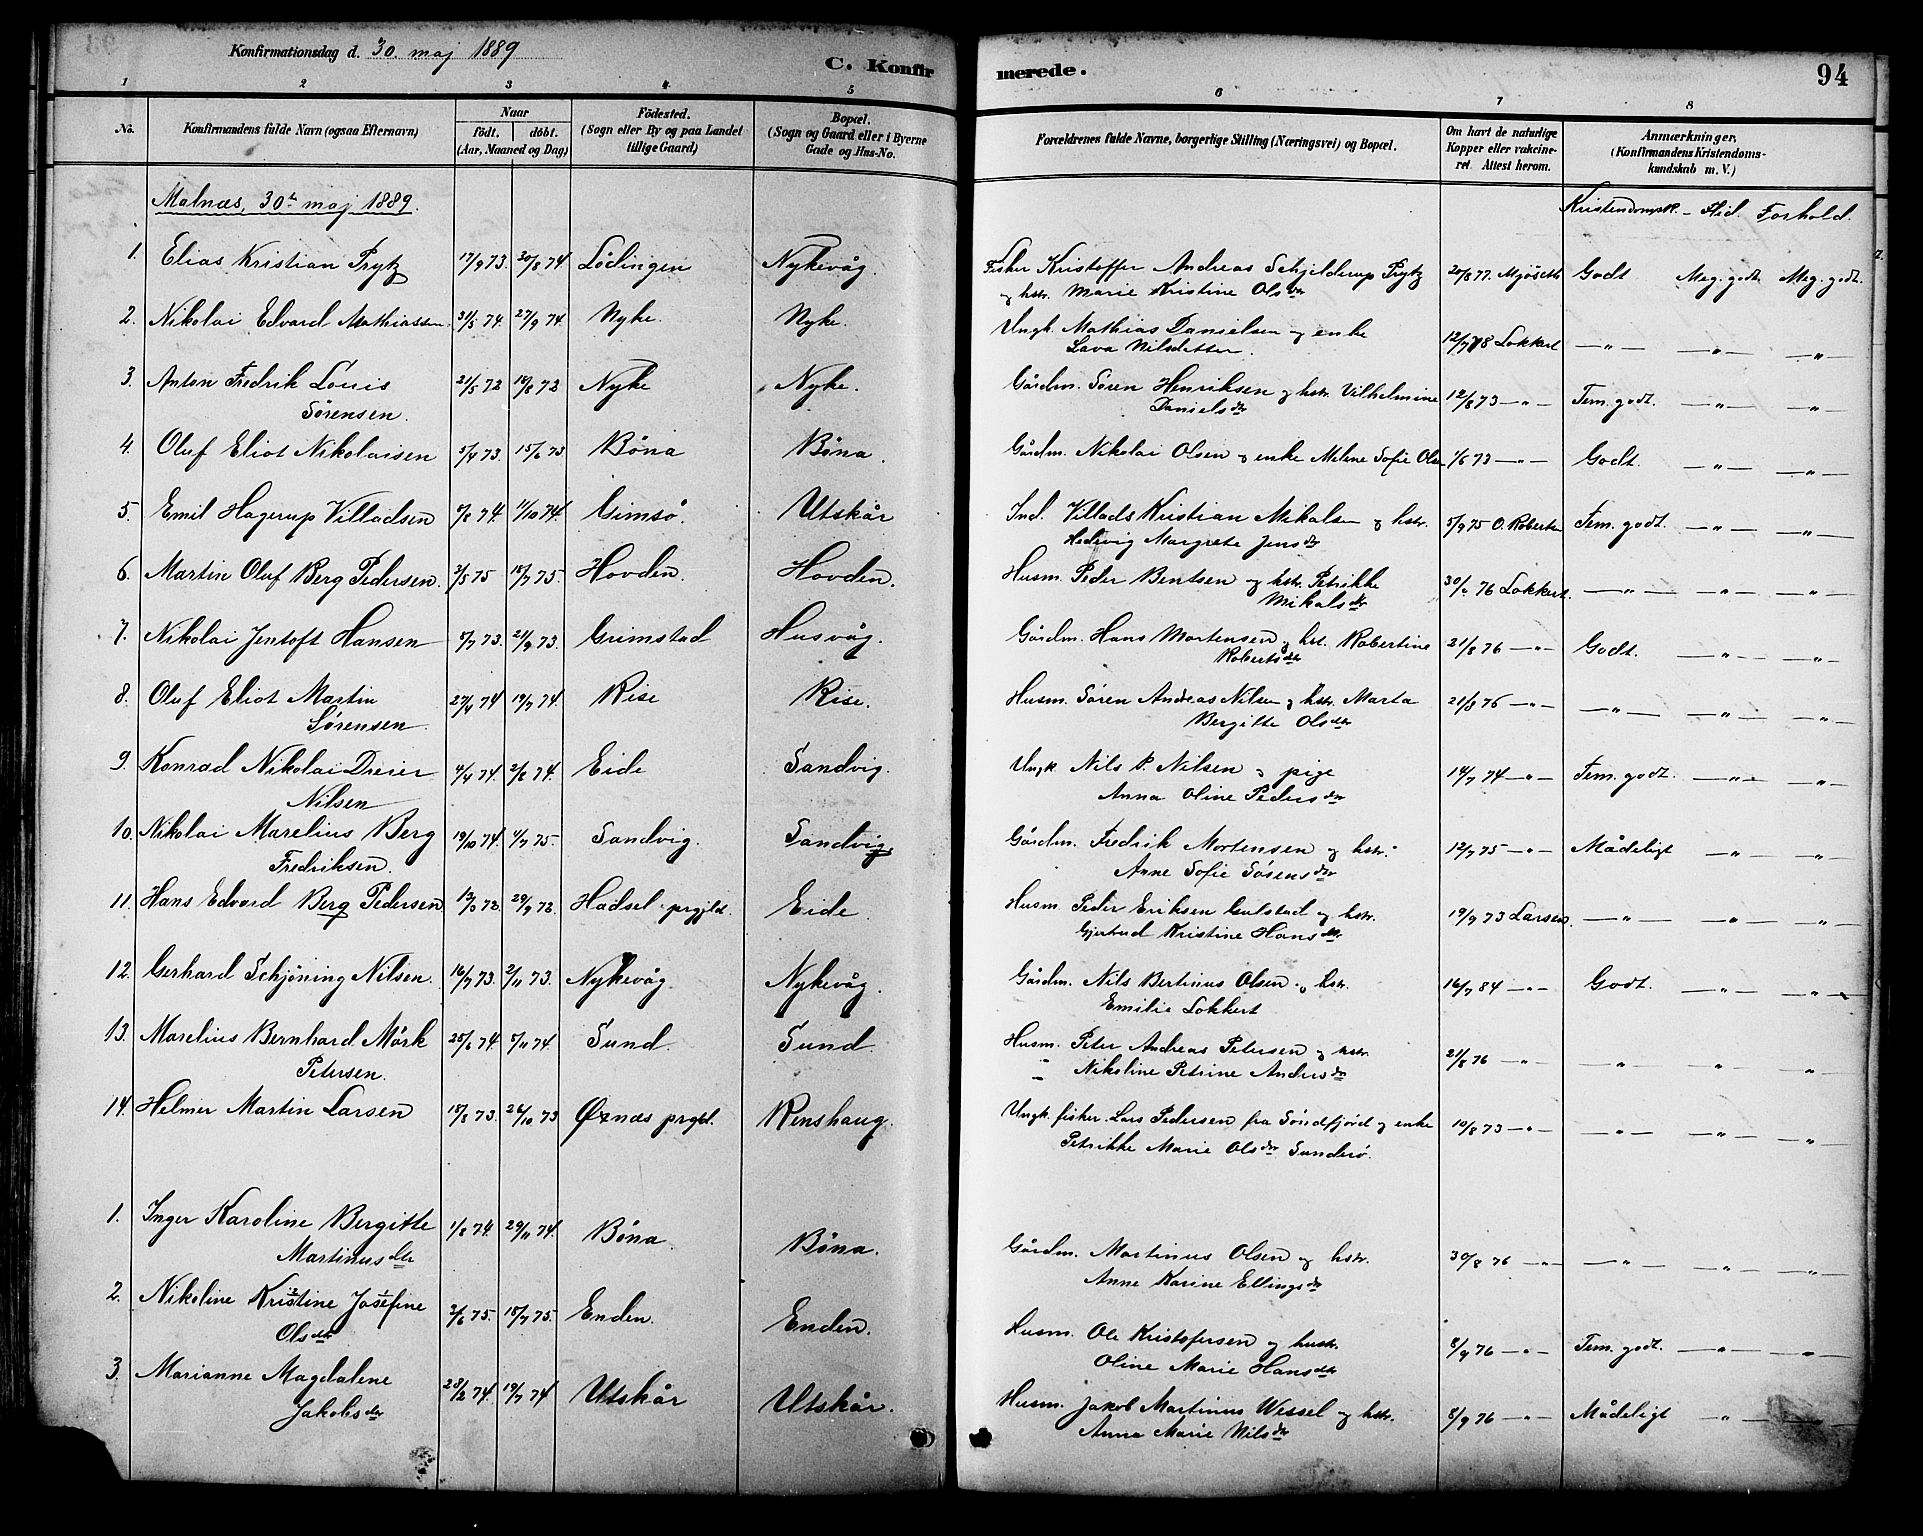 Konfirmationsdag d. 30. maj 1889
C. Konfirmerede.
94
1 2 3 4 5 6 7 8
No.
Konfirmandens fulde Navn (ogsaa Efternavn)
Naar
födt. döbt.
(Aar, Maaned og Dag)
Födested.
(Sogn eller By og paa Landet
tillige Gaard)
Bopæl.
(Sogn og Gaard eller i Byerne
Gade og Hus-No.
Forældrenes fulde Navne, borgerlige Stilling (Næringsvei) og Bopæl.
Om havt de naturlige
Kopper eller vakcine-
ret. Attest herom.
Anmærkninger,
(Konfirmandens Kristendoms-
kundskab m. V.)
Malnæs, 30te maj 1889.
Kristendomsk. - Flid. Forhold.
1. Elias Kristian Prytz 17/9 73. 30/8 74 Lödingen Nykevåg. Fisker Kristoffer Andreas Schjelderup Prytz 20/8 77. Mjöseth Godt Meg. godt Meg. godt.
og hstr. Marie Kristine Olsdtr
2. Nikolai Edvard Mathiassen 31/5 74. 27/9 74. Nyke. Nyke. Ungk. Mathias Danielsen og enke 12/7 78 Lokkert —„— —„— —„
Lava Nilsdatter.
3. Anton Fredrik Louis 21/5 72 18/8 72 Nyke Nyke. Gårdm. Sören Henriksen og hstr. Vilhelmine 12/8 73 —„— Tem. godt. —„— —„
Sørensen. Danielsdtr
4. Oluf Eliot Nikolaisen 5/4 73. 15/6 73 Böna Böna. Gårdm. Nikolai Olsen og enke Milene Sofie Olsen 1/6 73 —„— Godt. —„— —„—
5. Emil Hagerup Villadsen 9/8 74. 11/10 74. Gimsö. Utskår Ind. Villads Kristian Mikalsen og hstr. 5/9 75 O. Robertsen Tem. godt. —„— —„—
Hedevig Margrete Jensdtr
6. Martin Oluf Berg Pedersen. 3/5 75 18/7 75. Hovden. Hovden. Husm. Peder Bentsen og hstr. Petrikke 30/6 76 Lokkert. —„— —„— —„—
Mikalsdtr
7. Nikolai Jentoft Hansen 5/7 73. 21/9 73. Grimstad Husvåg. Gårdm. Hans Mortensen og hst. Robertine 21/8 76 —„— Godt. —„— —„—
Robertsdtr
8. Oluf Eliot Martin 27/4 74 19/7 74. Rise Rise. Husm. Sören Andreas Nilsen og hstr. Marta 21/8 76 —„— —„— —„— „
Sørensen Bergitte Olsdtr
9. Konrad Nikolai Dreier 4/4 74. 2/8 74. Eide Sandvig. Ungk. Nils P. Nilsen og pige 14/7 74 —„— Tem. godt. —„— —„
Nilsen Anna Oline Pedersdtr
10. Nikolai Marelius Berg 19/10 74. 4/7 75. Sandvig. Sandvig. Gårdm. Fredrik Mortensen og hstr. 12/7 75 —„— Mådeligt —„— —„—
Fredriksen. Anne Sofie Sörensdtr
11. Hans Edvard Berg Pedersen 13/3 73. 29/9 73. Hadsel prgjld. Eide. Husm. Peder Eriksen Gulstad og hstr. 19/9 73 Larsen. —„— —„— „
Gjertrud Kristine Hansdtr
12. Gerhard Schjöning Nilsen. 16/7 73. 2/11 73. Nykevåg. Nykevåg. Gårdm. Nils Bertinus Olsen og hstr. 16/7 84 —„— Godt. —„— —„—
Emilie Lokkert
13. Marelius Bernhard Mörk 25/6 74. 5/11 74. Sund. Sund. Husm. Peter Andreas Petersen og hstr. 21/8 76 —„— „ „ „
Petersen. Nikoline Petrine Andersdtr
14. Helmer Martin Larsen 18/8 73. 26/10 73 Øxnæs prgjld. Renshaug. Ungk. fisker Lars Pedersen fra Söndfjord og enke 10/8 73 —„— —„— —„— „
Petrikke Marie Olsdtr Sunderö.
1. Inger Karoline Bergitte 1/8 74. 29/11 74. Böna. Böna. Gårdm. Martinus Olsen og hstr. 30/8 76 —„— —„— „ —„—
Martinusdtr Anne Karine Ellingsdtr
2. Nikoline Kristine Josefine 3/6 75. 18/7 75. Enden. Enden. Husm. Ole Kristofersen og hustr. 8/9 76 —„— Tem. godt. —„— —„
Olsdtr Oline Marie Hansdtr
3. Marianne Magdalene 28/2 74. 19/7 74 Utskår Utskår. Husm. Jakob Martinus Wessel og hstr. 8/9 76 —„— Mådeligt „ —„—
Jakobsdtr Anna Marie Nilsdtr